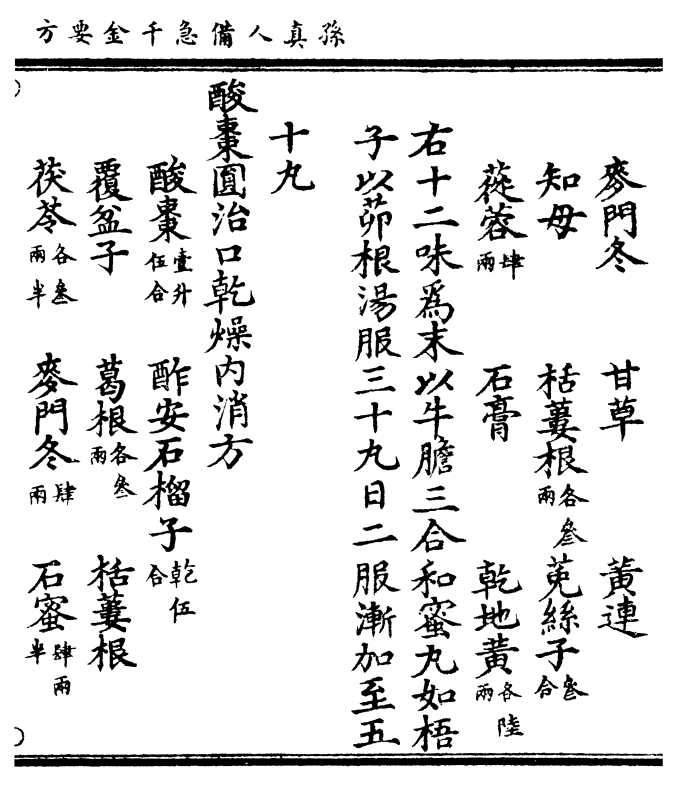 孫真人備急千金要方
麥門冬 甘草 黃連
知母 栝蔞根各叄兩 菟絲子叄合
蓯蓉肆兩 石膏 乾地黃各陸兩
右十二味爲末以牛膽三合和蜜丸如梧
子以茆根湯服三十丸日二服漸加至五
十丸
酸棗圓治口乾燥內消方
酸棗壹升伍合 酢安石榴子乾伍合
覆盆子 葛根各叄兩 栝蔞根
茯苓各叄兩半 麥門冬肆兩 石蜜肆兩半